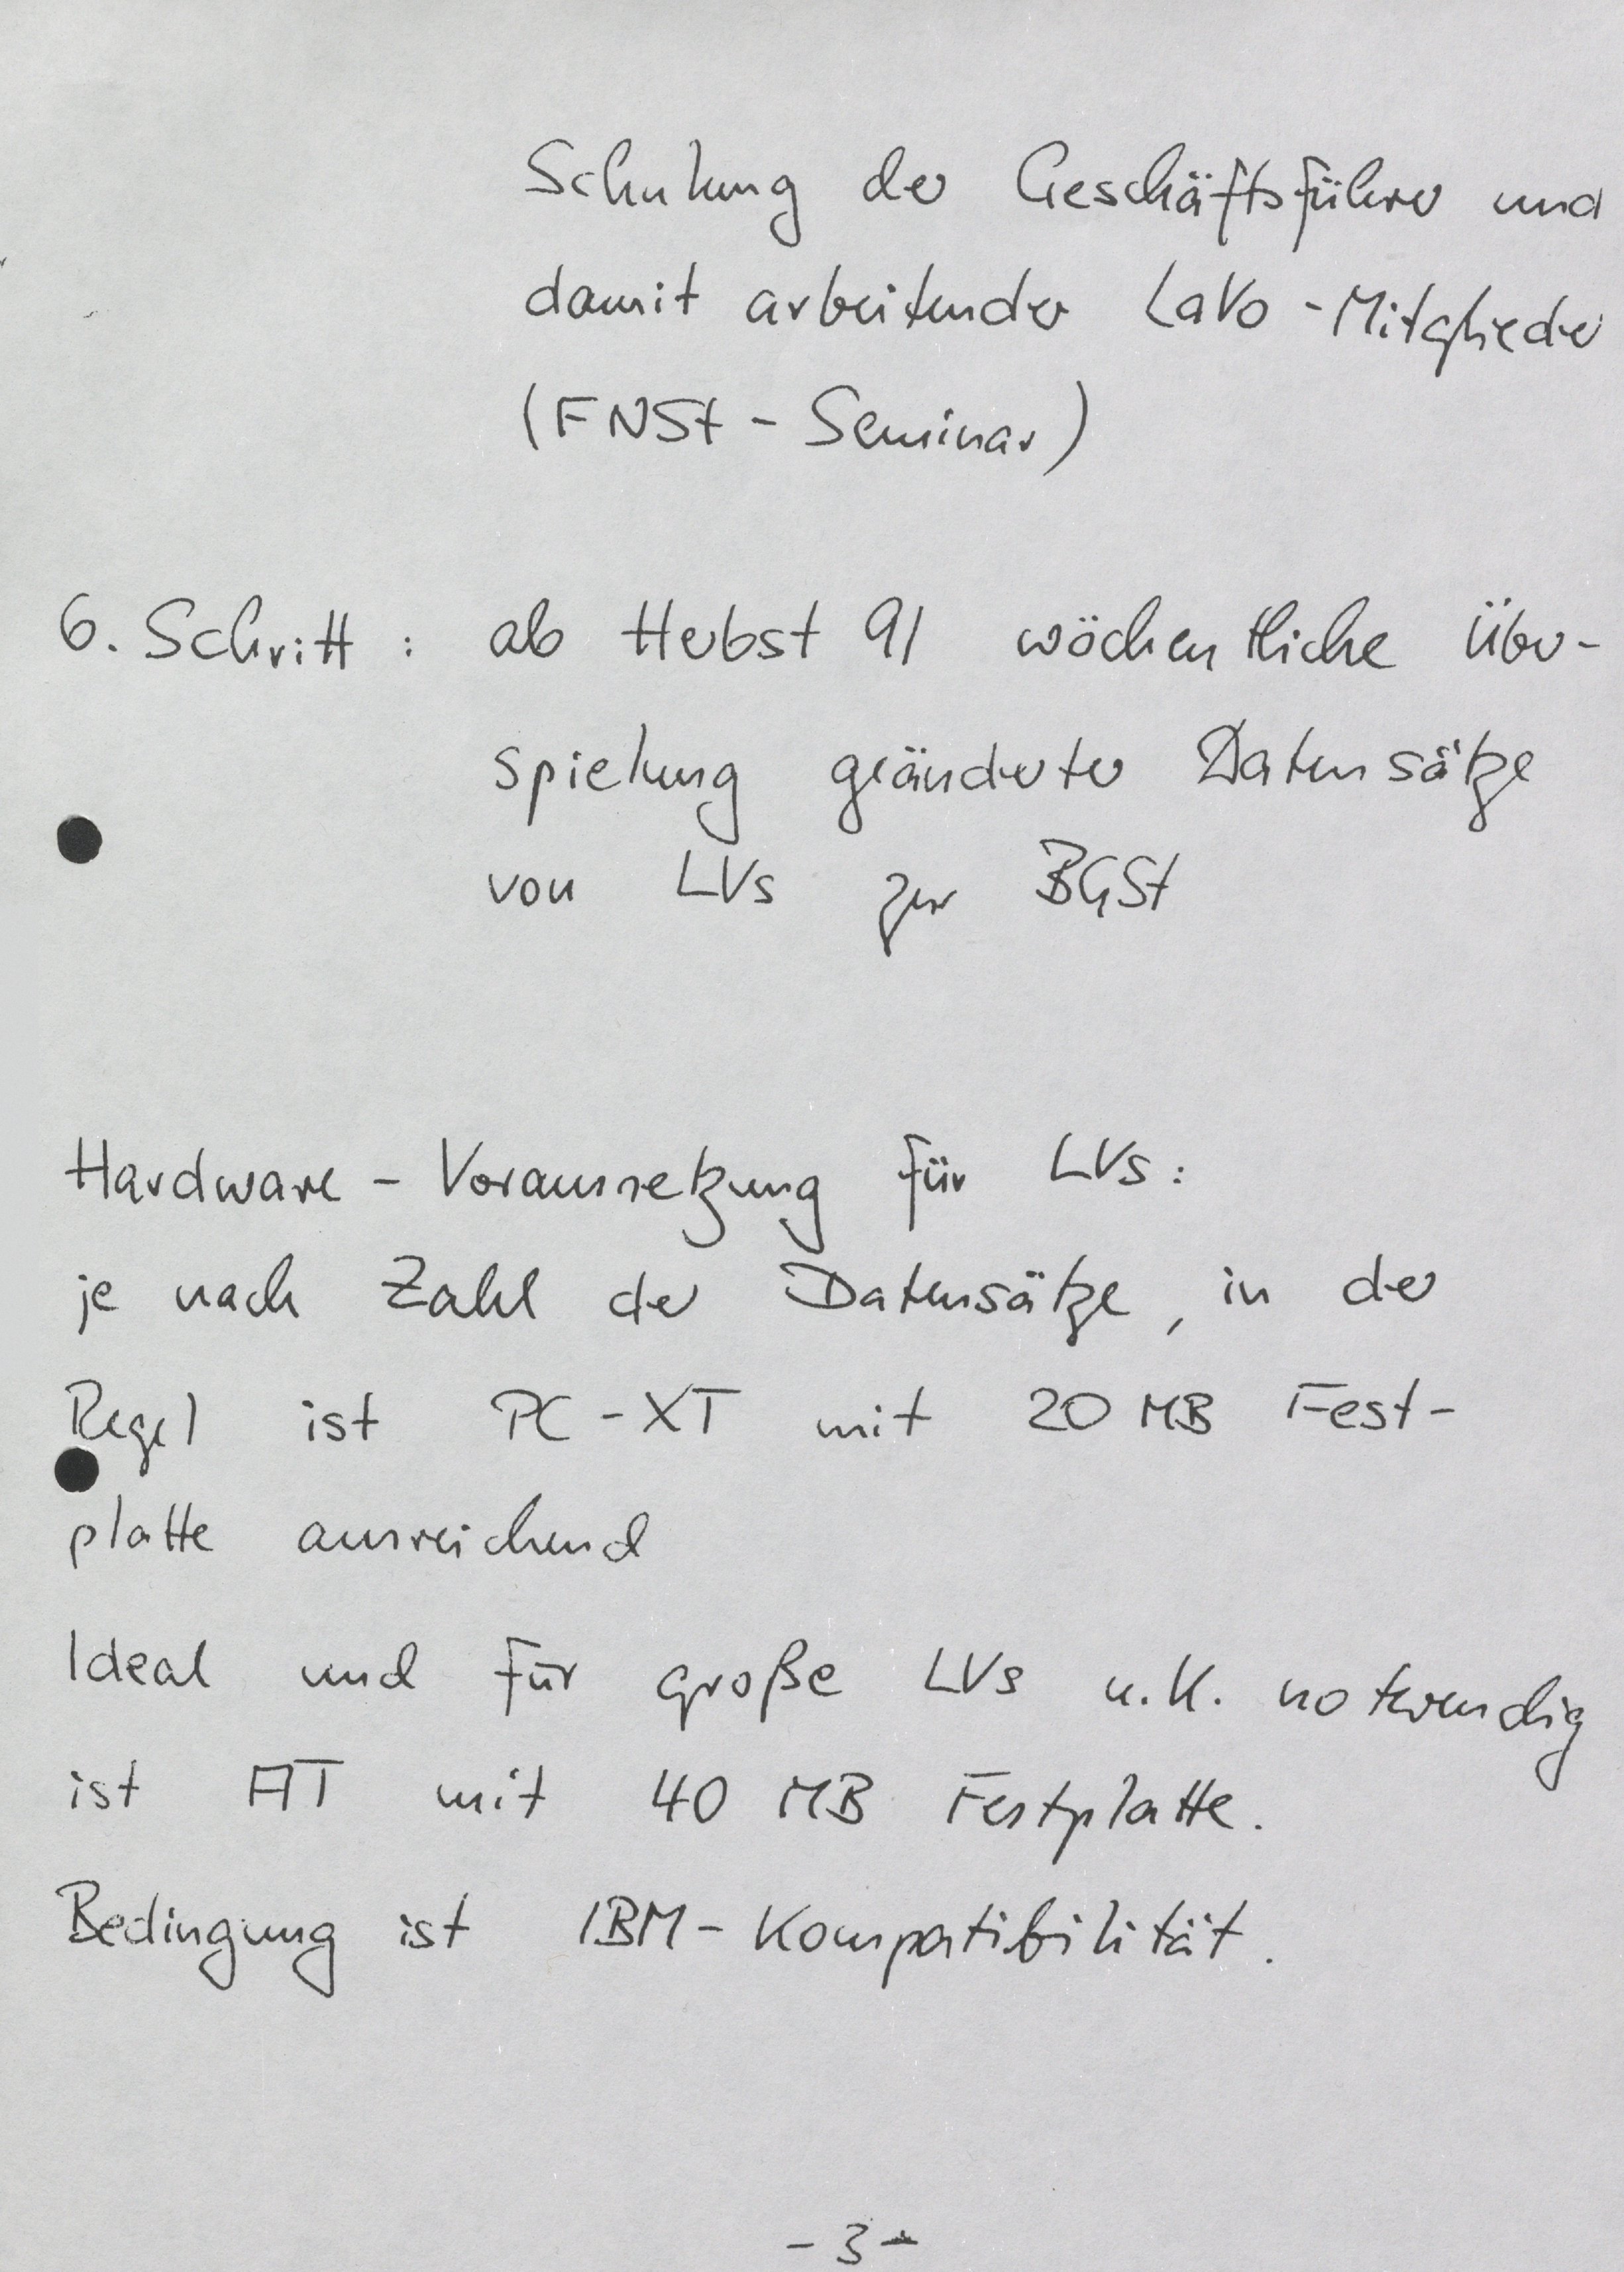 Schulung der Geschäftsführer und
damit arbeitender LaVo-Mitglieder
(FNSt - Seminar)
6. Schritt: ab Herbst 91 wöchentliche Über-
spielung geänderter Datensätze
von LVs zur BGSt
Hardware - Voraussetzung für LVs:
je nach Zahl der Datensätze, in der
Regel ist PC-XT mit 20 MB Fest-
platte ausreichend
Ideal und für große LVs u.U. notwendig
ist AT mit 40 MB Festplatte.
Bedingung ist IBM-Kompatibilität.
- 3 -